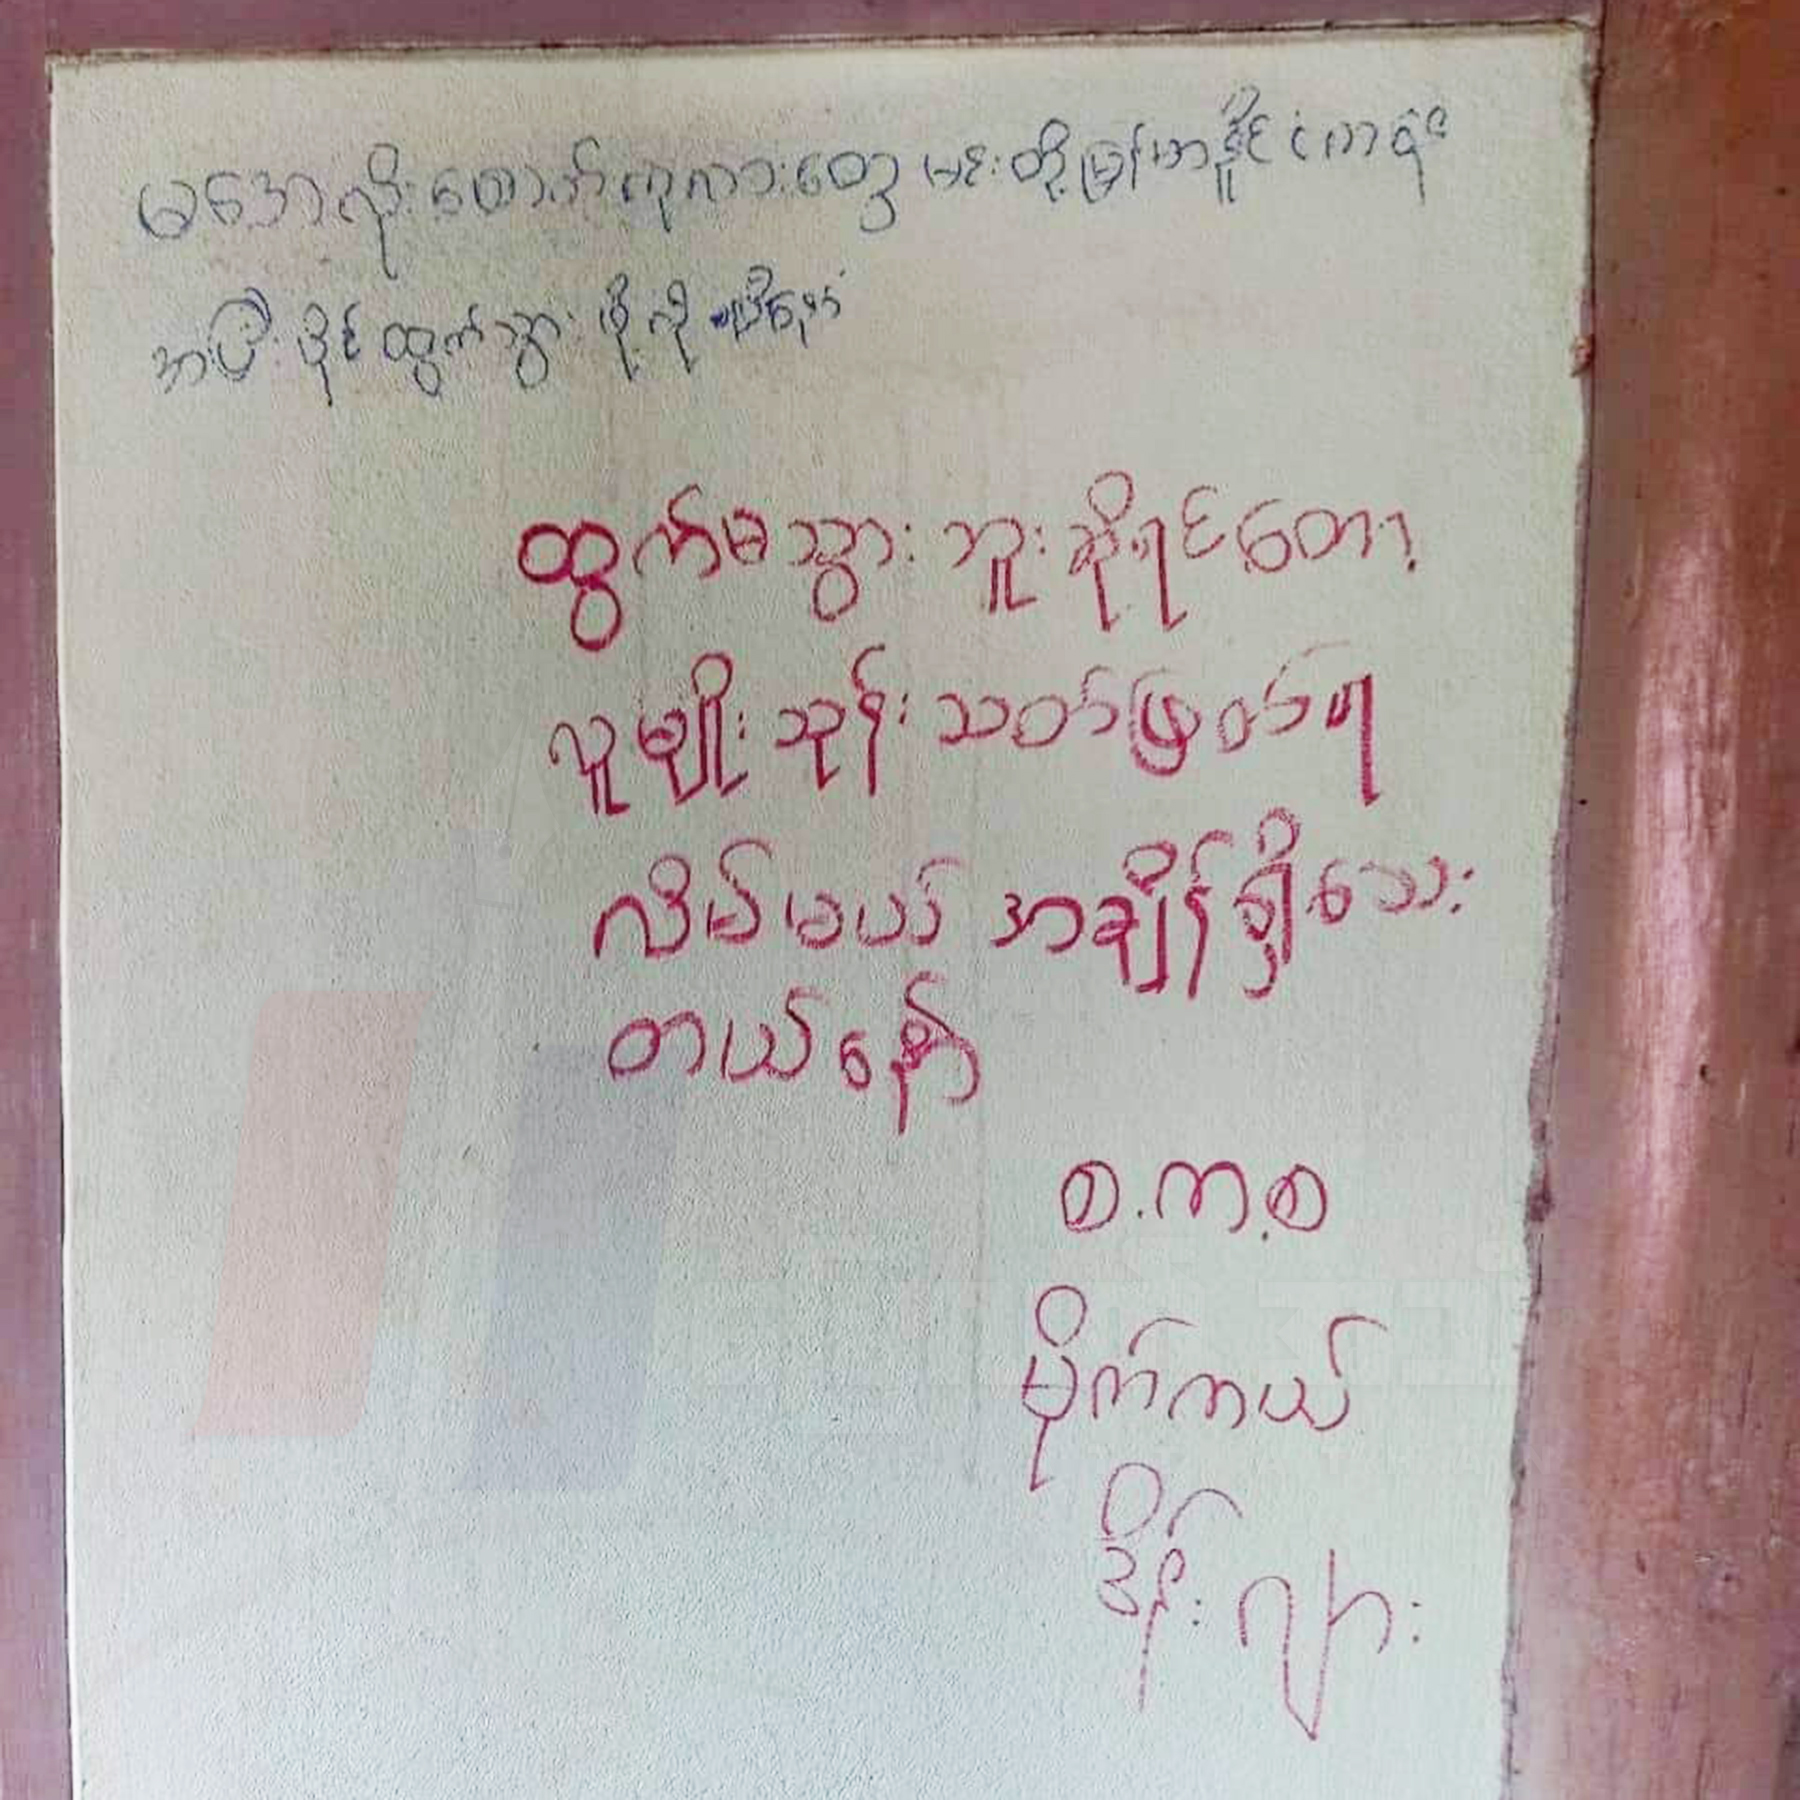 မအေလိုး တောက်ကုလားတွေ မင်းတို့ မြန်မာနိုင်ငံကနေ
အပြီးပိုင် ထွက်သွားဖို့လို
ထွက်မသွားဘူးဆိုရင်တော့
လူမျိုးသုန်းသတ်ဖြတ်ရ
လိမ်မယ် အချိန်ရှိသေး
တယ်နော်
စ.က.စ
မိုက်ကယ်
ဒိန်းဂျား